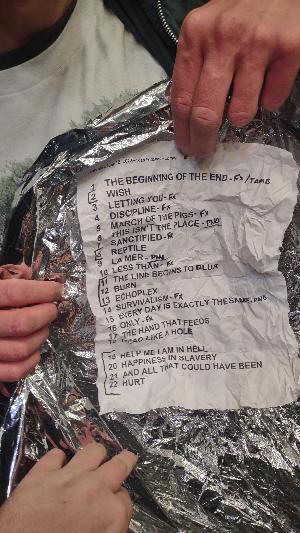 1 THE BEGINNING OF THE END - Fx / TAMB
2 WISH
3 LETTING YOU - Fx
4 DISCIPLINE - Fx
5 MARCH OF THE PIGS - Fx
6 THIS ISN'T THE PLACE - PNO
7 SANCTIFIED - Fx
8 REPTILE
9 LA MER - PNO
10 LESS THAN - Fx
11 THE LINE BEGINS TO BLUR
12 BURN
13 ECHOPLEX
14 SURVIVALISM - Fx
15 EVERY DAY IS EXACTLY THE SAME - PNO
16 ONLY - Fx
17 THE HAND THAT FEEDS
HEAD LIKE A HOLE
19 HELP ME I AM IN HELL
20 HAPPINESS IN SLAVERY
21 AND ALL THAT COULD HAVE BEEN
22 HURT